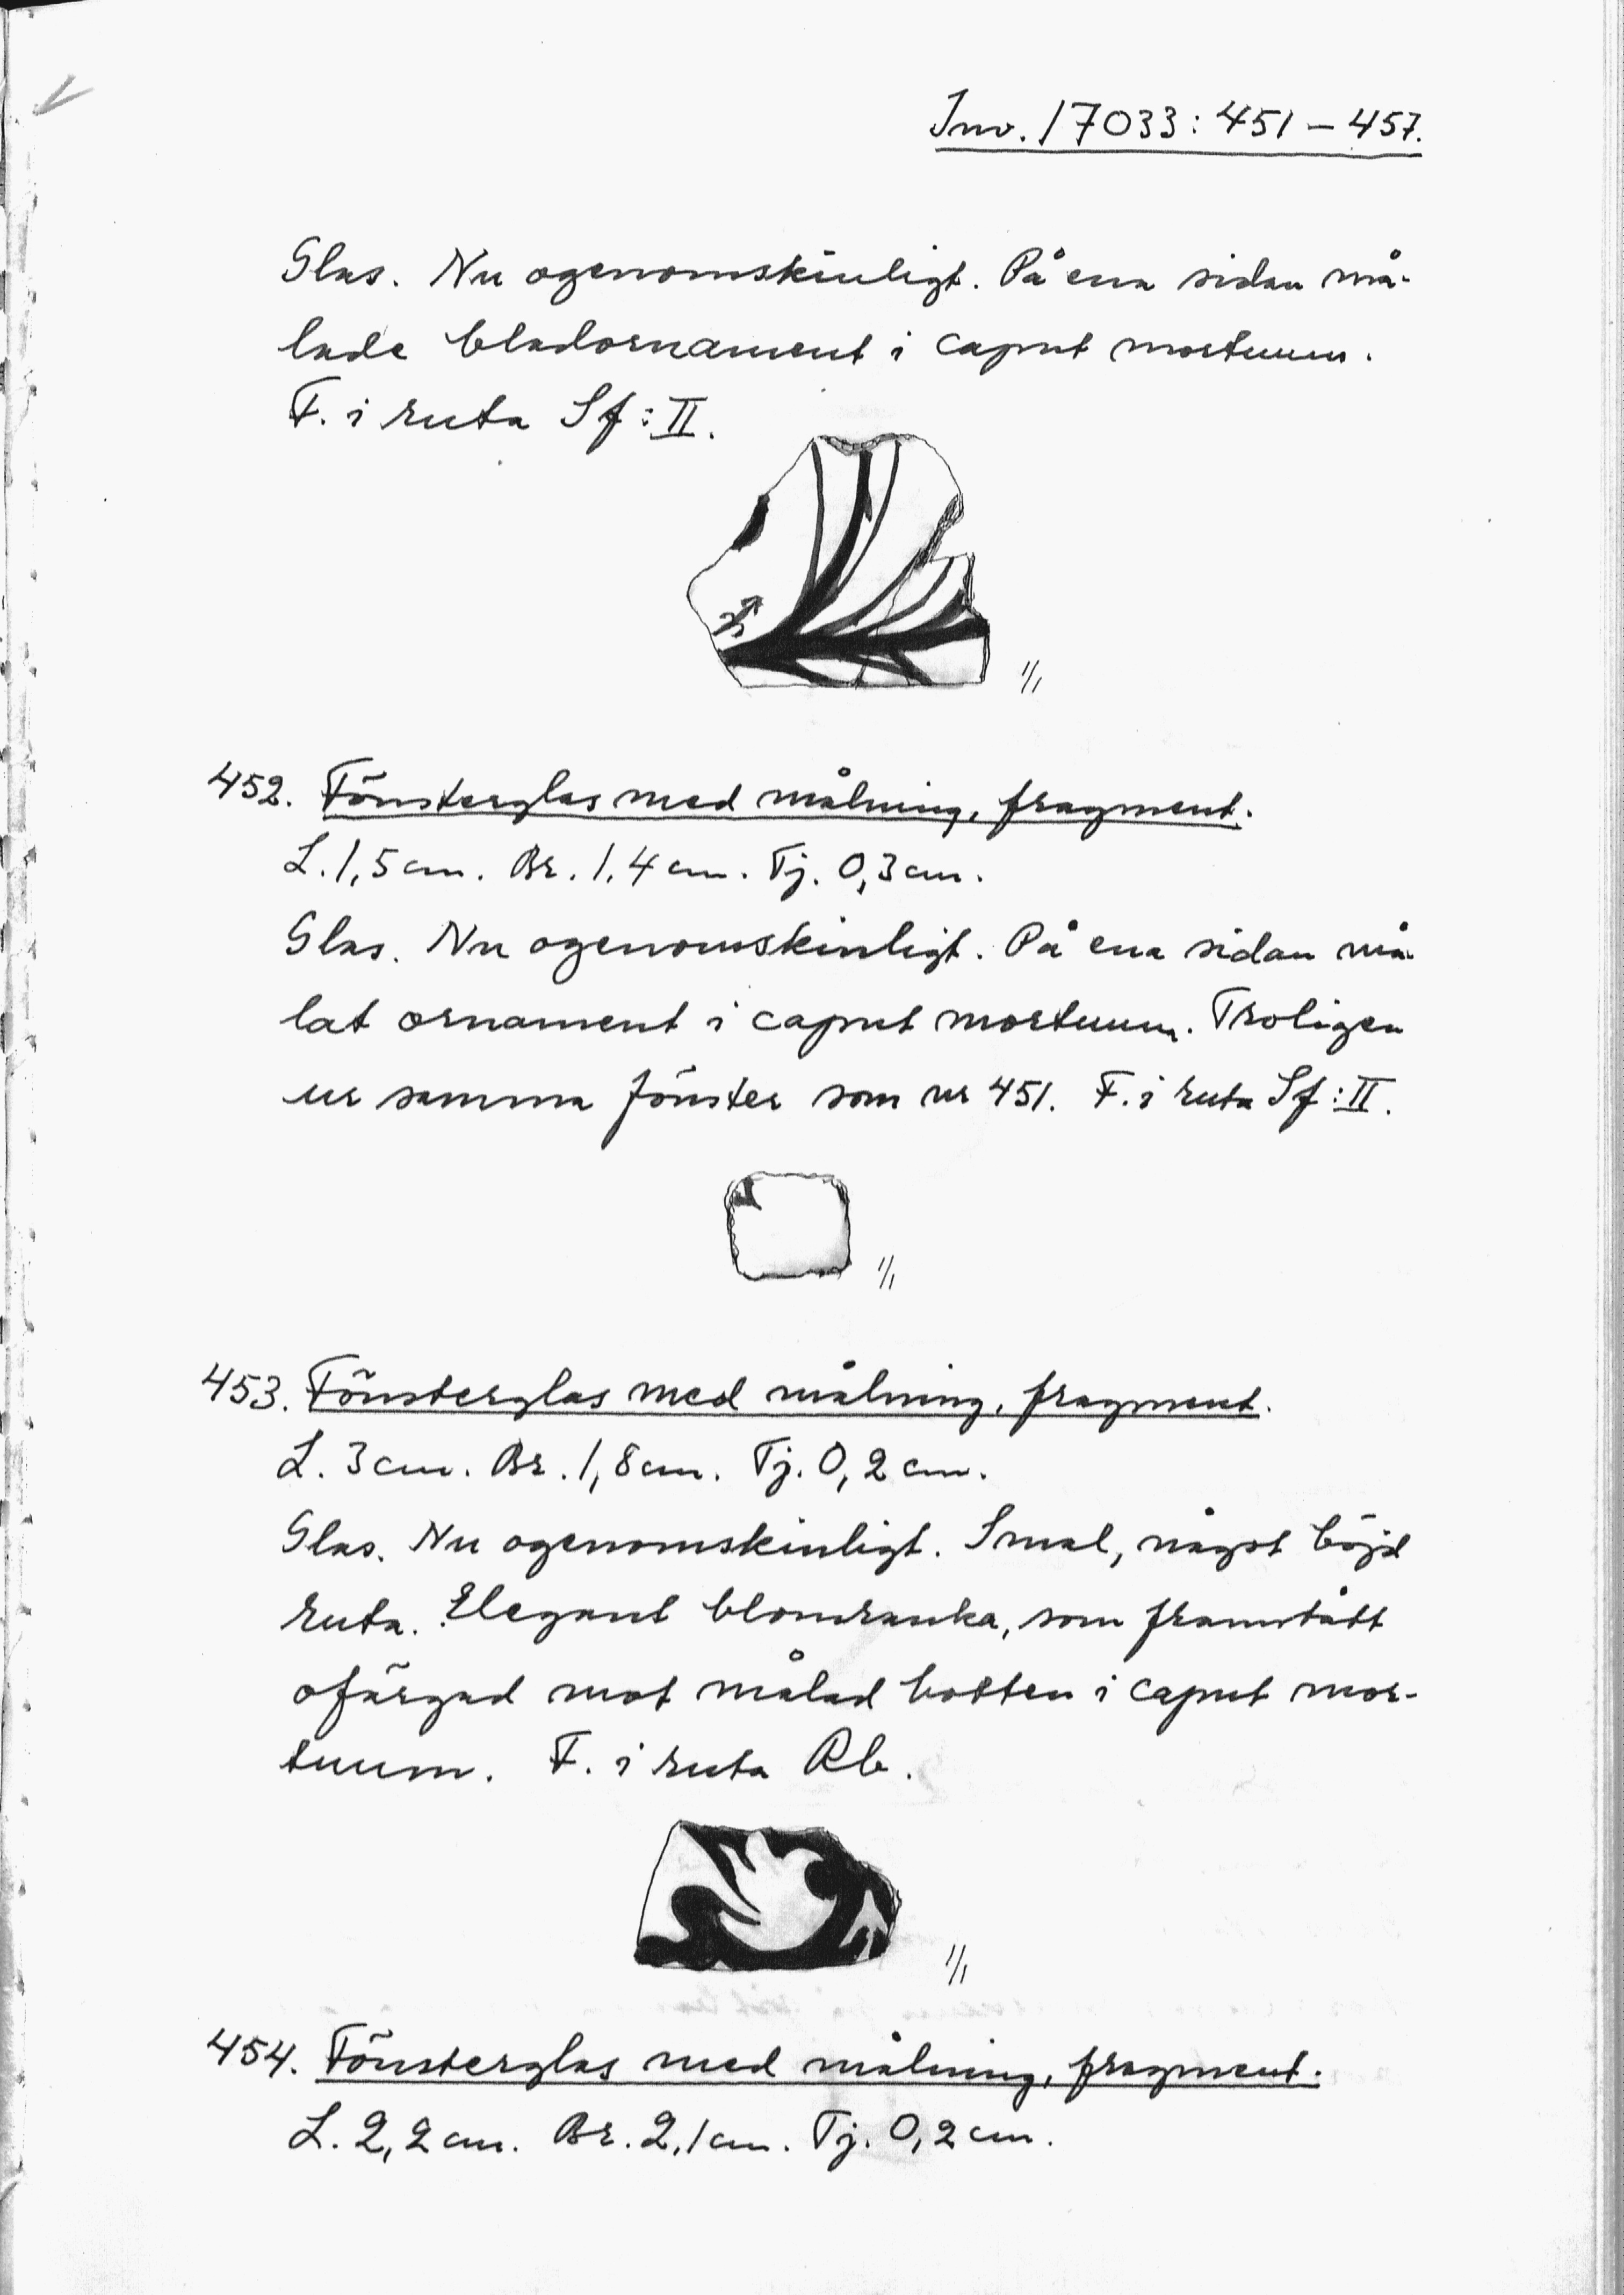 Inv. 17033: 451 – 457.
Glas. Nu ogenomskinligt. På ena sidan må-
lade bladornament i caput mortuum.
F. i ruta Sf: II.
1/1
452. Fönsterglas med målning, fragment.
L. 1,5 cm. Br. 1,4 cm. Tj. 0,3 cm.
Glas. Nu ogenomskinligt. På ena sidan må-
lat ornament i caput mortuum. Troligen
ur samma fönster som nr 451. F. i ruta Sf: II.
1/1
453. Fönsterglas med målning, fragment.
L. 3 cm. Br. 1,8 cm. Tj. 0,2 cm.
Glas. Nu ogenomskinligt. Smal, något böjd
ruta. Elegant blomranka, som framstått
ofärgad mot målad botten i caput mor-
tuum. F. i ruta Rb.
1/1
454. Fönsterglas med målning, fragment.
L. 2,2 cm. Br. 2,1 cm. Tj. 0,2 cm.